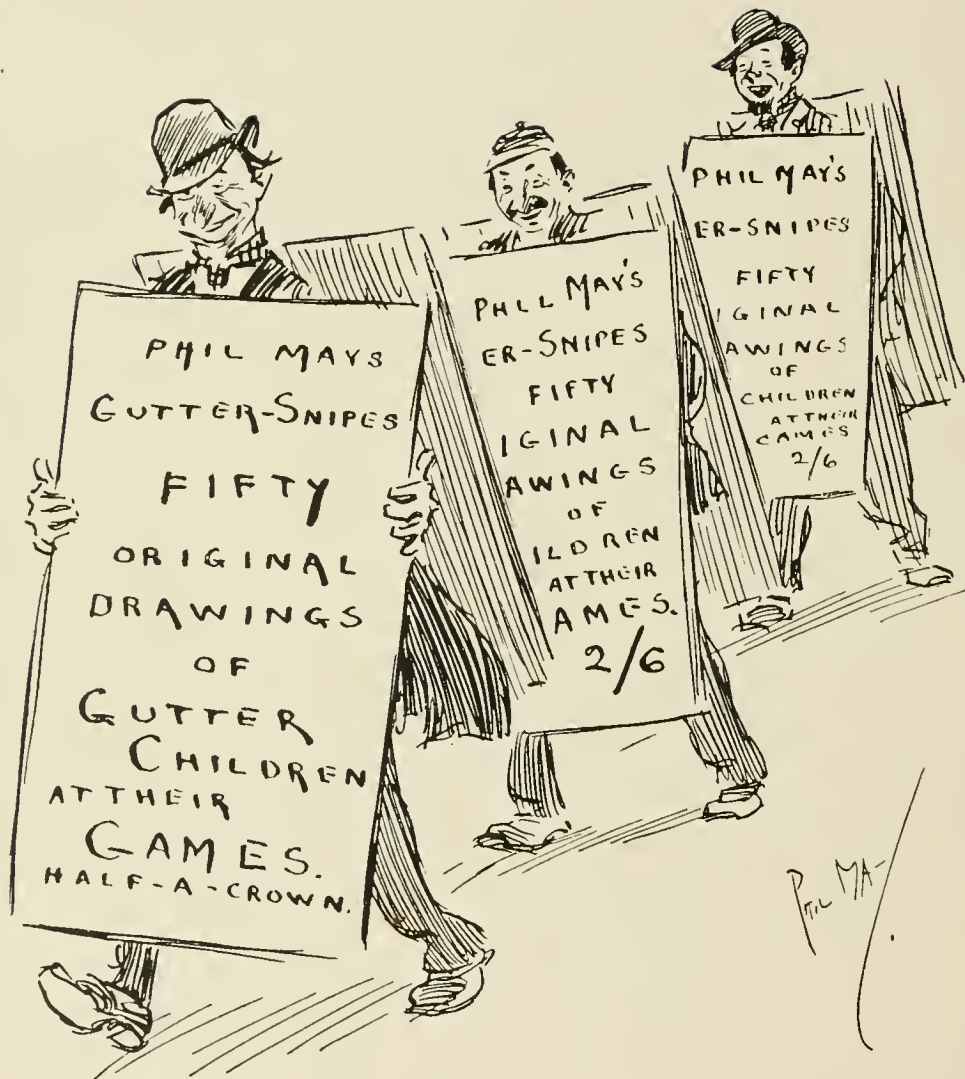 PHIL MAYS
GUTTER-SNIPES
FIFTY
ORIGINAL
DRAWINGS
OF
GUTTER
CHILDREN
AT THEIR
GAMES.
HALF-A-CROWN.
PHIL MAY'S
ER-SNIPES
FIFTY
IGINAL
AWINGS
OF
ILDREN
AT THEIR
AMES.
2/6
PHIL MAY'S
ER-SNIPES
FIFTY
IGINAL
AWINGS
OF
CHILDREN
AT THEIR
GAMES
2/6
PHIL MAY